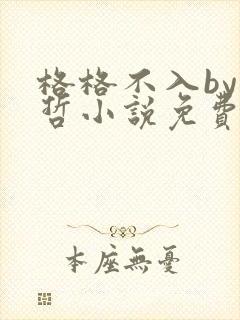 格格不入by
哲小說免費
本座無憂